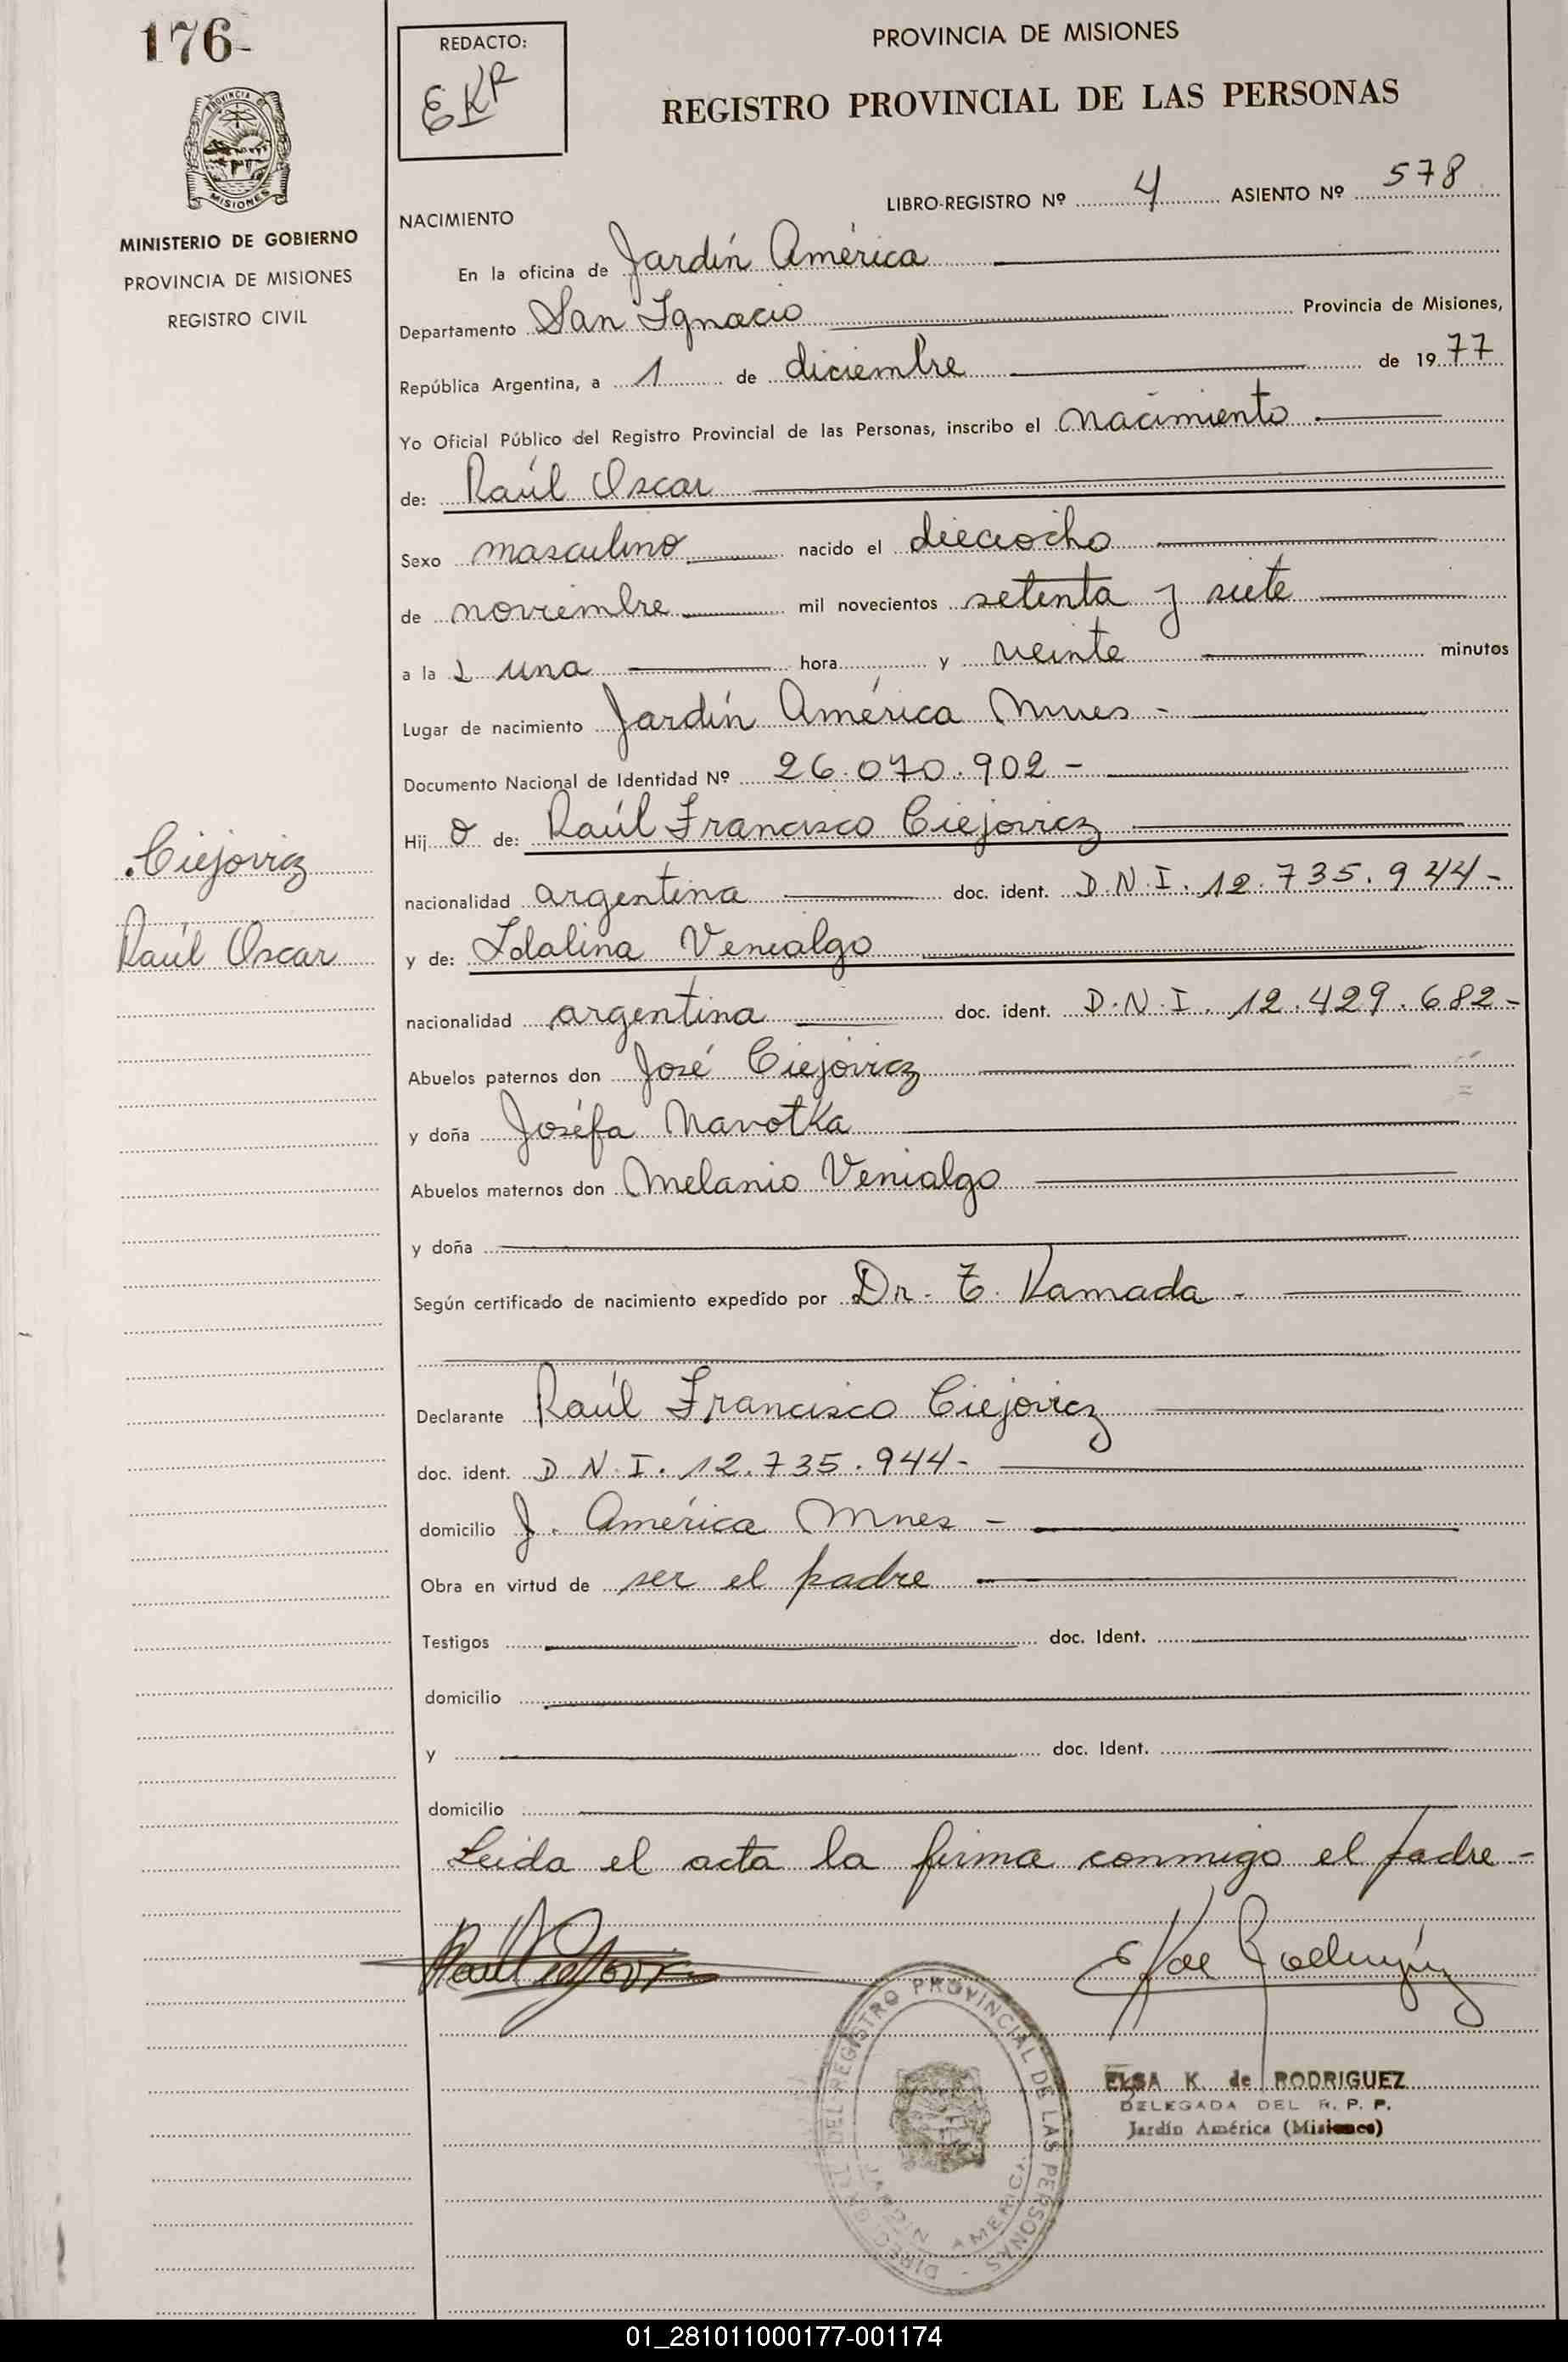 176-
REDACTO:
EKR
PROVINCIA DE MISIONES
REGISTRO PROVINCIAL DE LAS PERSONAS
PROVINCIA DE
MISIONES
MINISTERIO DE GOBIERNO
PROVINCIA DE MISIONES
REGISTRO CIVIL
LIBRO-REGISTRO Nº 4 ASIENTO Nº 578
NACIMIENTO
En la oficina de Jardín América
Departamento San Ignacio Provincia de Misiones,
República Argentina, a 1 de diciembre de 1977
Yo Oficial Público del Registro Provincial de las Personas, inscribo el nacimiento
de: Raúl Oscar
Sexo masculino nacido el dieciocho
de noviembre mil novecientos setenta y siete
a la una hora y veinte minutos
Lugar de nacimiento Jardín América Mnes -
Documento Nacional de Identidad Nº 26.070.902 -
Hijo de: Raúl Francisco Ciejovicz
Ciejovicz
nacionalidad argentina doc. ident. D.N.I. 12.735.944-
Raúl Oscar
y de: Idalina Venialgo
nacionalidad argentina doc. ident. D.N.I. 12.429.682-
Abuelos paternos don José Ciejovicz
y doña Joséfa Navotka
Abuelos maternos don Melanio Venialgo
y doña
Según certificado de nacimiento expedido por Dr. T. Kamada -
Declarante Raúl Francisco Ciejovicz
doc. ident. D.N.I. 12.735.944-
domicilio J. América Mnes -
Obra en virtud de ser el padre
Testigos doc. Ident.
domicilio
y doc. Ident.
domicilio
Leida el acta la firma conmigo el padre -
EK de Rodríguez
DEL REGISTRO PROVINCIAL DE LAS PERSONAS
JARDIN AMERICA
ELSA K. de RODRIGUEZ
DELEGADA DEL R. P. P.
Jardín América (Misiones)
01_281011000177-001174